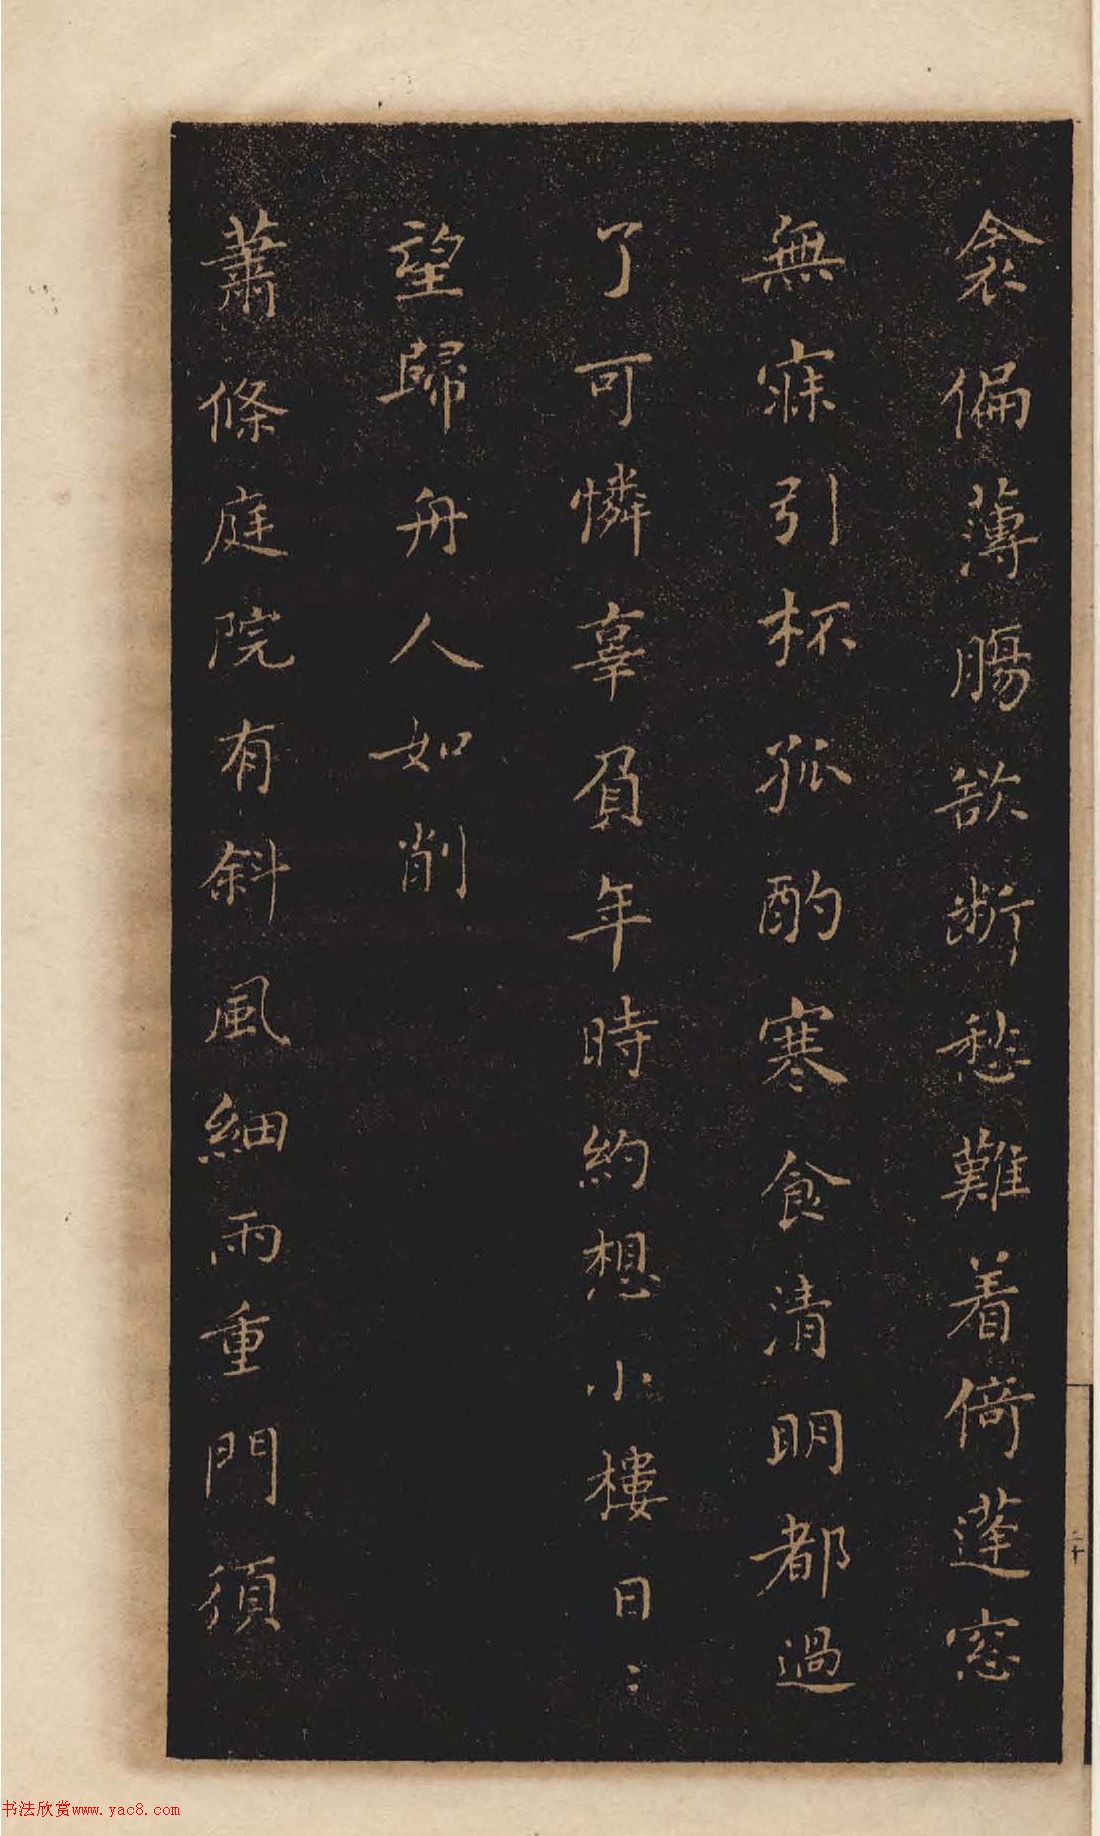 衾偏薄腸欲断愁難着倚蓬窓
無寐引杯孤酌寒食清明都過
了可憐辜負年時約想小樓日〻
望歸舟人如削
蕭條庭院有斜風細雨重門須
二十
书法欣赏www.yac8.com